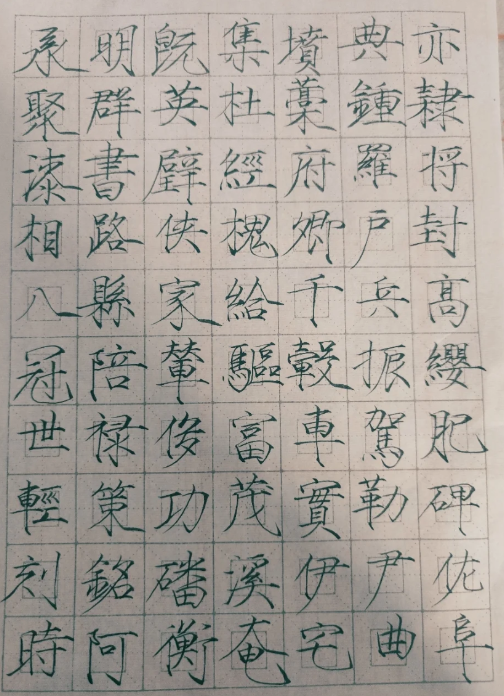 承明既集墳典亦
聚群英杜藁鍾隸
漆書壁經府羅将
相路侠槐卿戶封
八縣家給千兵髙
冠陪輦驅轂振纓
世禄侈富車駕肥
輕策功茂實勒碑
刻銘磻溪伊尹佐
時阿衡奄宅曲阜